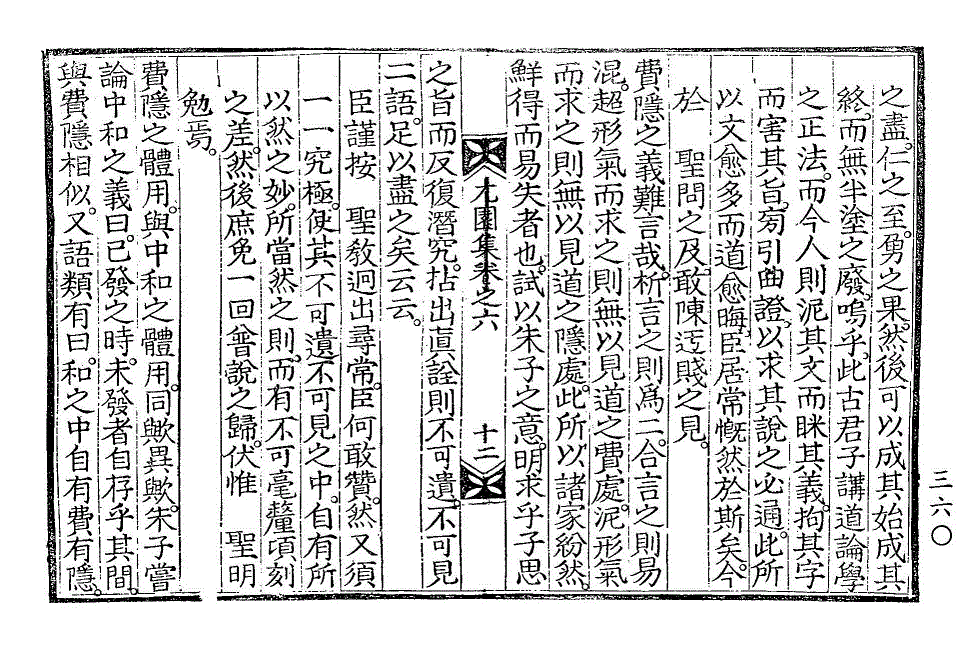 之盡。仁之至。勇之果。然後可以成其始成其
終。而無半塗之廢。嗚乎。此古君子講道論學
之正法。而今人則泥其文而眯其義。拘其字
而害其旨。旁引曲證。以求其說之必通。此所
以文愈多而道愈晦。臣居常慨然於斯矣。今
於　聖問之及。敢陳迃賤之見。
費隱之義難言哉。析言之則爲二。合言之則易
混。超形氣而求之則無以見道之費處。泥形氣
而求之則無以見道之隱處。此所以諸家紛然。
鮮得而易失者也。試以朱子之意。明求乎子思
尤園集卷之六　十二
之旨而反復潛究。拈出眞詮則不可遺。不可見
二語。足以盡之矣云云。
臣謹按　聖敎迥出尋常。臣何敢贊。然又須
一一究極。使其不可遺不可見之中。自有所
以然之妙。所當然之則。而有不可毫釐頃刻
之差。然後庶免一回普說之歸。伏惟　聖明
勉焉。
費隱之體用。與中和之體用。同歟異歟。朱子嘗
論中和之義曰。已發之時。未發者自存乎其間。
與費隱相似。又語類有曰。和之中自有費有隱。
三六〇